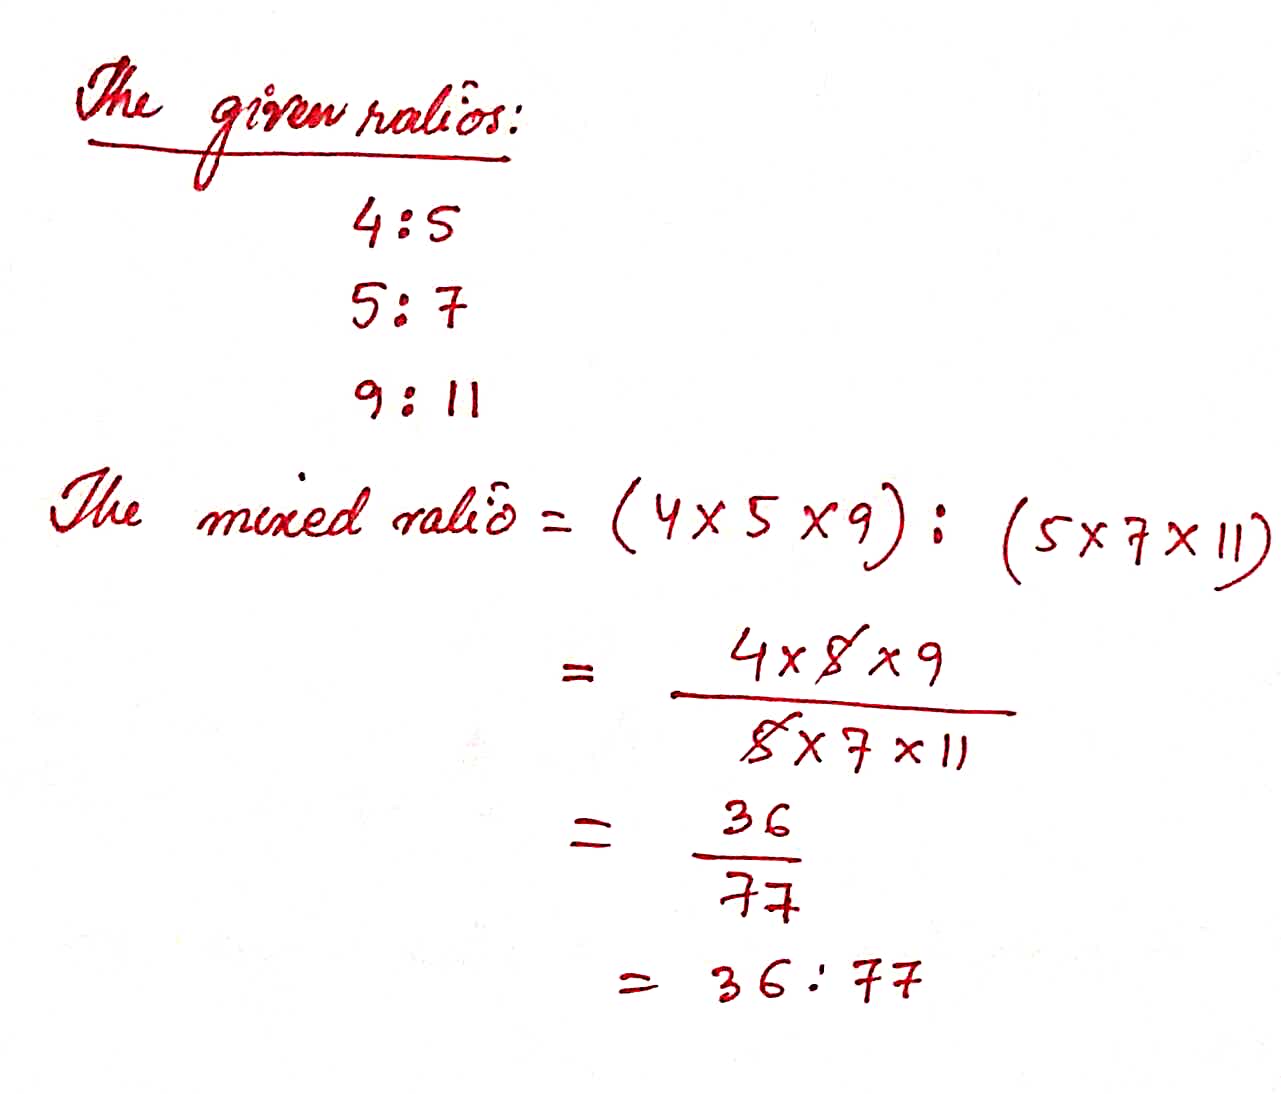 The given ratios:
4:5
5:7
9:11
The mixed ratio = (4×5×9) : (5×7×11)
= 4×5×9
5×7×11
= 36
77
= 36:77